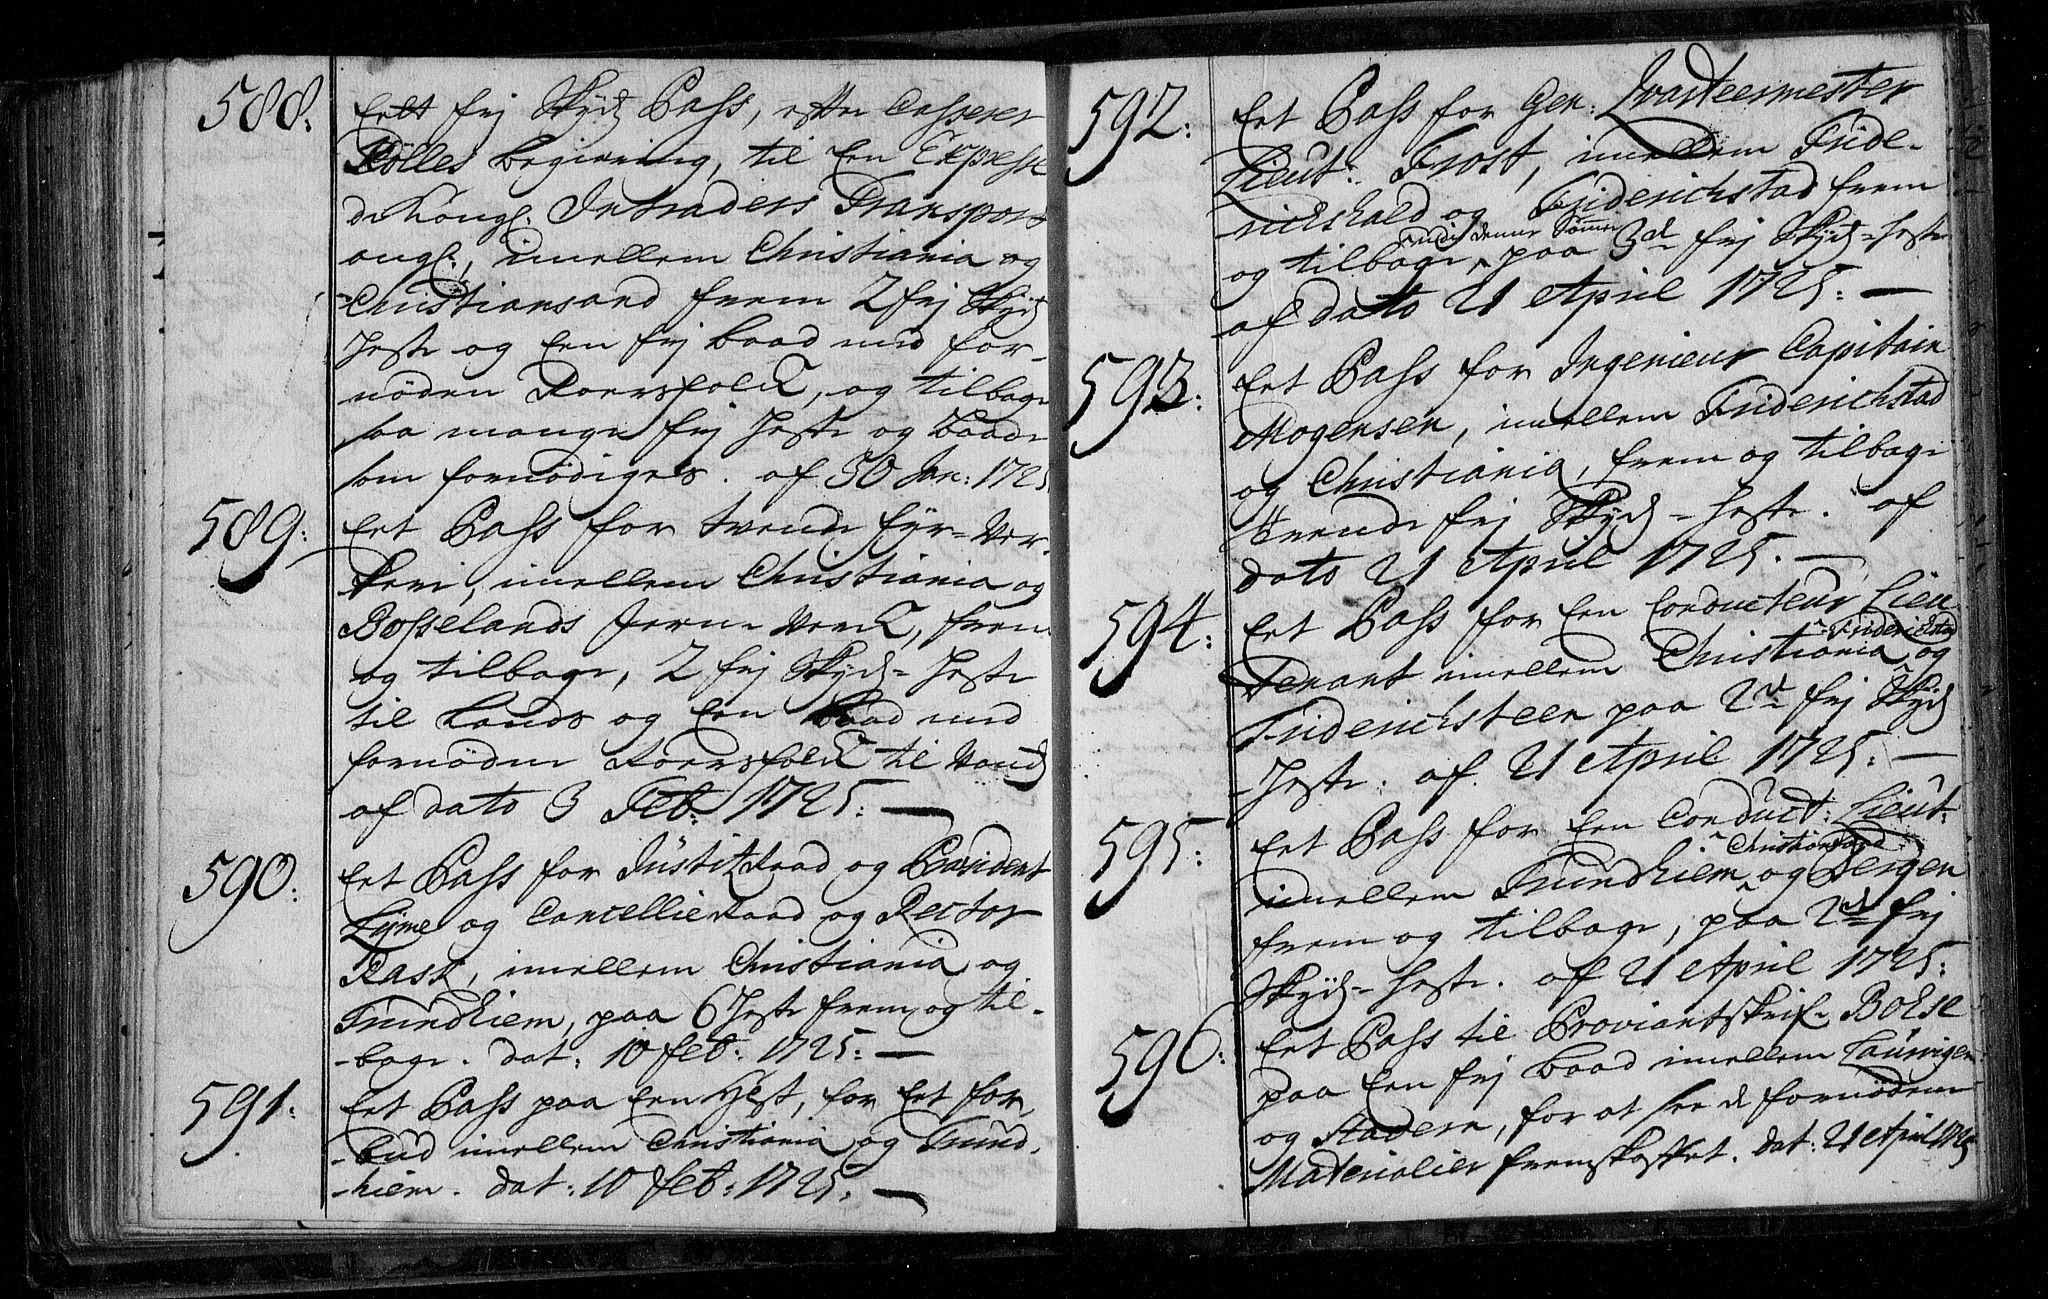 588: Ett frj Skyds Pass, efter Casserer
Rolles begiering, til een Expresse
de Kongl. Intraders Transport
angl:, imellem Christiania og
Christiansand frem 2 frj Skyds
Heste og een frj baad med for-
nøden Roersfolck, og tilbage
saa mange frj Heste og baade
som fornødiges. af 30 Jan: 1725
589: Eet Pass for tvende fyr-Ver-
keri, imellem Christiania og
Bosselands Jern-Verck, frem
og tilbage, 2 frj Skyds-Heste
til Lands og een baad med
fornøden Roersfolck til Vands
af dato 3 Feb: 1725:
590: Eet Pass for Justitzraad og Præsident
Lyme og Cancellieraad og Rector
Rask, imellem Christiania og
Trundhiem, paa 6 Heste frem og til-
bage. dat: 10 feb: 1725:
591: Eet Pass paa een Hest, for Eet for-
bud imellem Christiania og Trund-
hiem. dat: 10 feb: 1725:
592: Eet Pass for Gen: Qvarteermester
Lieut: Frost, imellem Fride-
richshald og Friderichstad frem
indev. denne Sommer
og tilbage paa 3de frj Skyds-Heste
af dato 21 April 1725:
593: Eet Pass for Ingenieur Capitain
Mogensen, imellem Friderichstad
og Christiania, frem og tilbage
tvende frj Skyds-Heste. af
dato 21 April 1725.
594: Eet Pass for Een Conducteur Lieu-
Friderichstad
tenant imellem Christiania og
Friderichsteen paa 2de frj Skyds
Heste: af 21 April 1725:
595: Eet Pass for Een Conduct: Lieut:
Christiansand
imellem Trundhiem og Bergen
frem og tilbage, paa 2de frj
Skyds-Heste. af 21 April 1725:
596: Eet Pass til Proviantskrif. Boese
paa Een frj baad imellem Laurvigen
og Stadern, for at see de fornødene
Materialier fremskaffet. dat: 21 April 1725